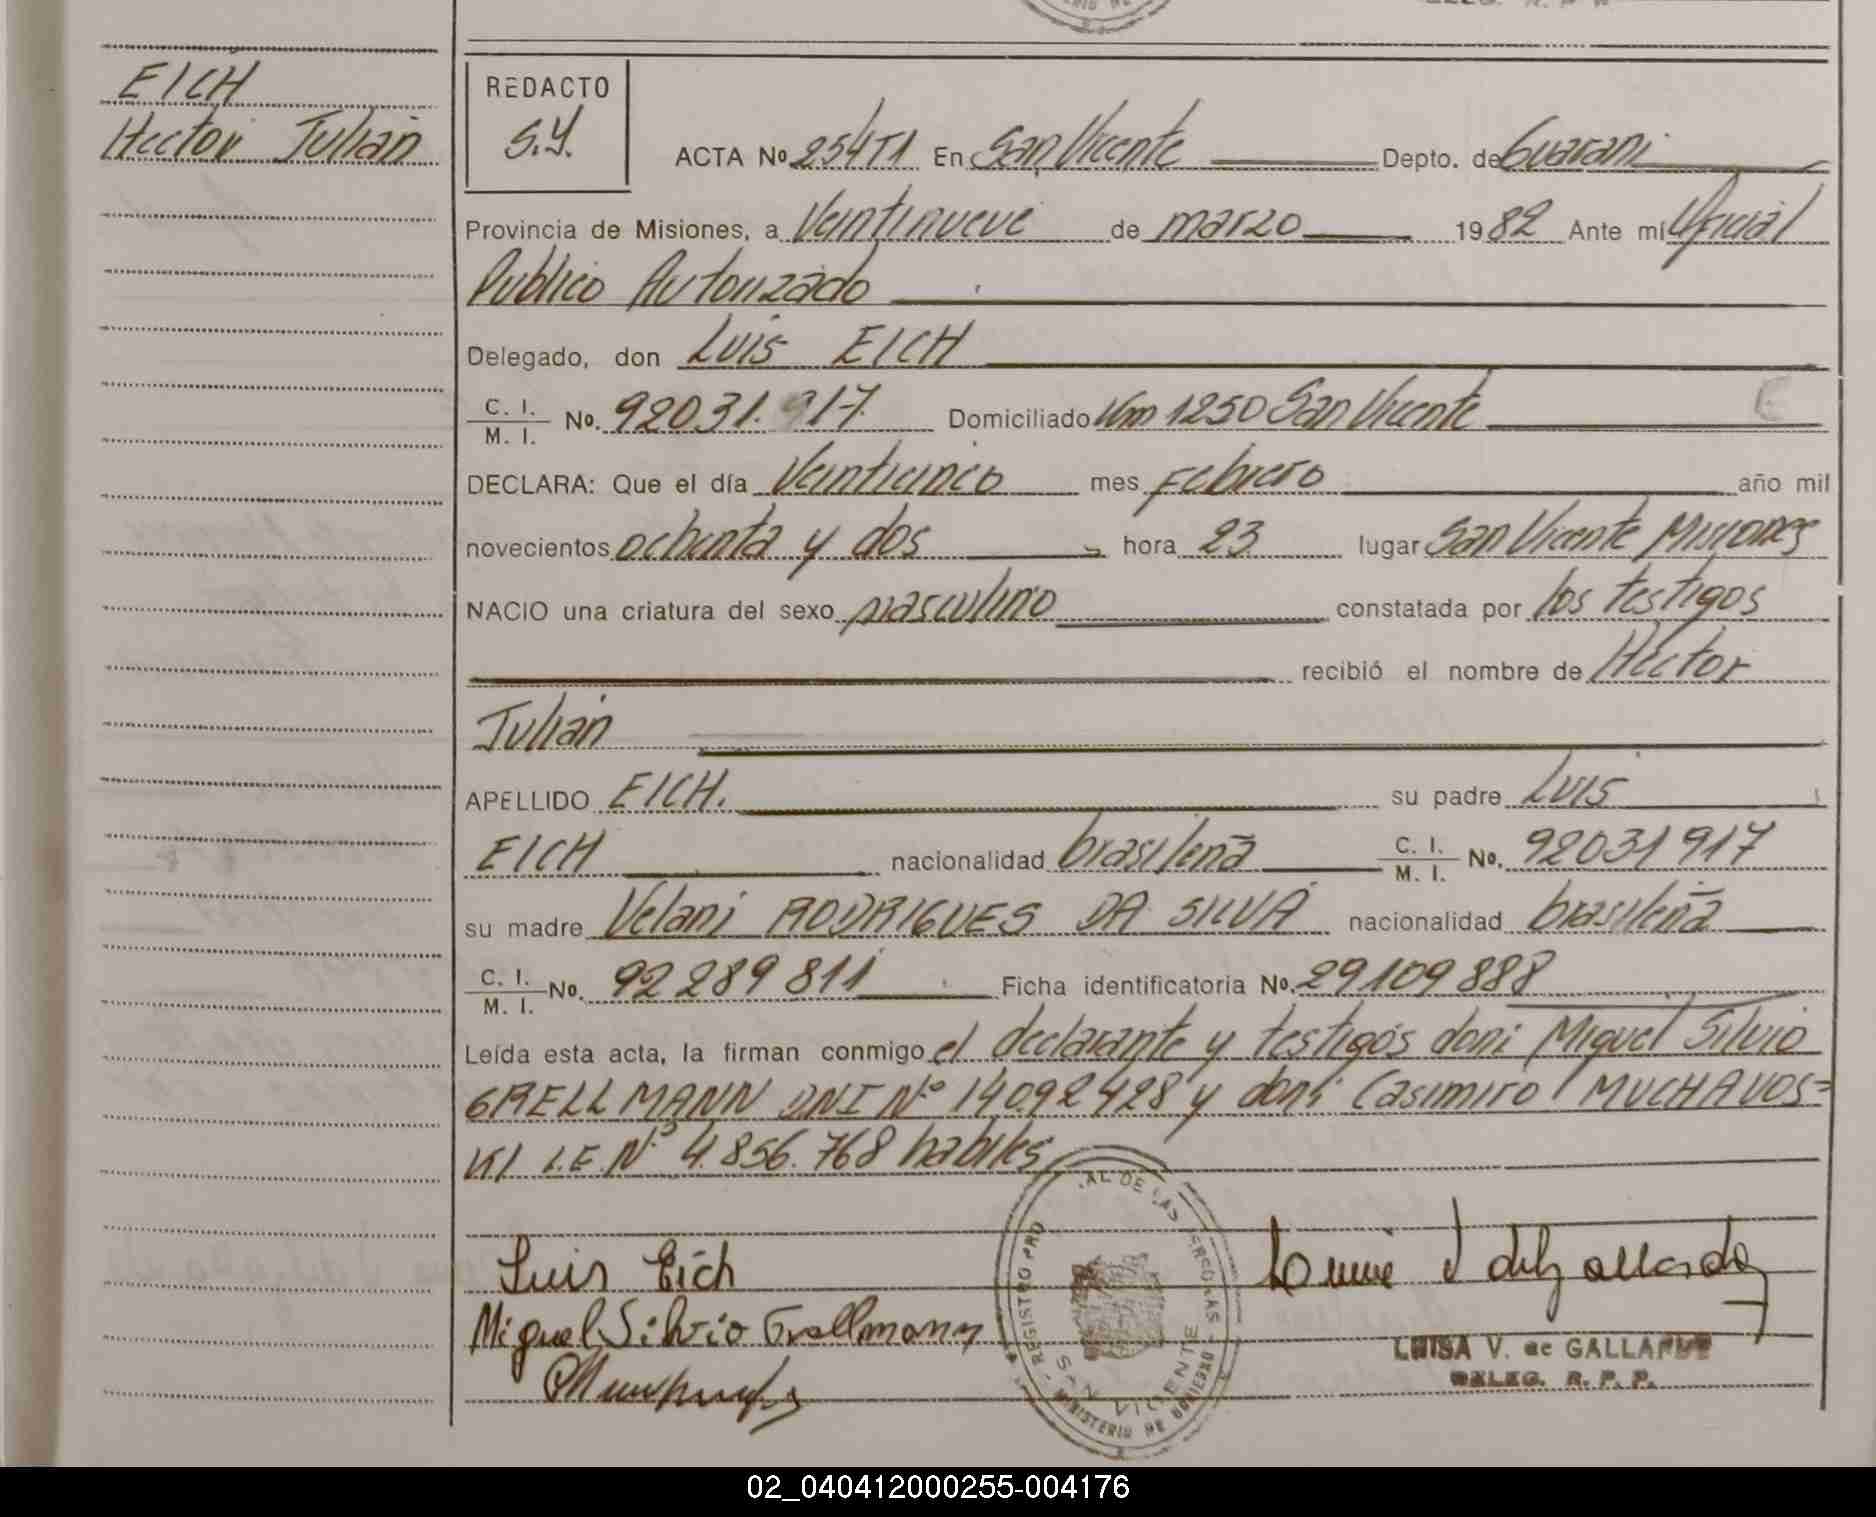 EICH
Hector Julian
REDACTO
S.Y.
ACTA No 254T1 En San Vicente Depto. de Guarani
Provincia de Misiones, a Veintinueve de marzo 1982 Ante mí Oficial
Publico Autorizado
Delegado, don Luis EICH
C. I. / M. I. No. 92031.917. Domiciliado Km 1250 San Vicente
DECLARA: Que el día Veinticinco mes Febrero año mil
novecientos ochenta y dos hora 23 lugar San Vicente Misiones
NACIO una criatura del sexo masculino constatada por los testigos
recibió el nombre de Héctor
Julián
APELLIDO EICH. su padre Luis
EICH nacionalidad brasileña C. I. / M. I. No. 92031917
su madre Velani RODRIGUES DA SILVA nacionalidad brasileña
C. I. / M. I. No. 92289811 Ficha identificatoria No. 29109888
Leída esta acta, la firman conmigo el declarante y testigos don: Miguel Silvio
GRELLMANN DNI Nº 14092428 y don: Casimiro MUCHAVOS=
KI L.E. Nº 4.856.768 habiles
Luis Eich
Miguel Silvio Grellmann
REGISTRO PRO AL DE LAS PERSONAS
SAN VICENTE
MINISTERIO DE GOBIERNO
LUISA V. de GALLARDO
DELEG. R. P. P.
02_040412000255-004176